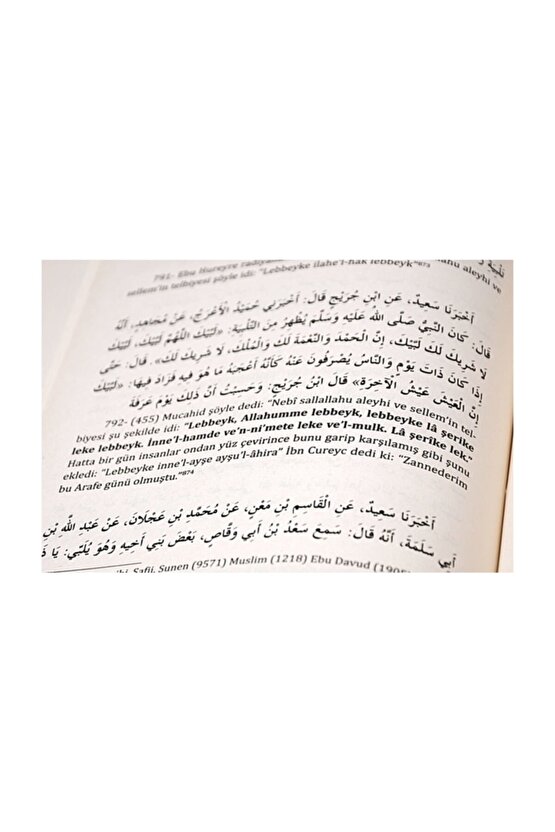 تَلْبِيَةِ
791- Ebu Hureyre
sellem'in telbiyesi şöyle idi: "Lebbeyke ilahe'l-hak lebbeyk"⁸⁷³ aleyhi ve
أَخْبَرَنَا سَعِيدٌ، عَنِ ابْنِ جُرَيْجٍ قَالَ: أَخْبَرَنِي حُمَيْدٌ الْأَعْرَجُ، عَنْ مُجَاهِدٍ، أَنَّهُ
قَالَ: كَانَ النَّبِيُّ صَلَّى اللهُ عَلَيْهِ وَسَلَّمَ يُظْهِرُ مِنَ التَّلْبِيَةِ: «لَبَّيْكَ اللَّهُمَّ لَبَّيْكَ، لَبَّيْكَ
لَا شَرِيكَ لَكَ لَبَّيْكَ، إِنَّ الْحَمْدَ وَالنِّعْمَةَ لَكَ وَالْمُلْكَ، لَا شَرِيكَ لَكَ». قَالَ: حَتَّى
إِذَا كَانَ ذَاتَ يَوْمٍ وَالنَّاسُ يُصْرَفُونَ عَنْهُ كَأَنَّهُ أَعْجَبَهُ مَا هُوَ فِيهِ فَزَادَ فِيهَا: «لَبَّيْكَ
إِنَّ الْعَيْشَ عَيْشُ الْآخِرَةِ» قَالَ ابْنُ جُرَيْجٍ: وَحَسِبْتُ أَنَّ ذَلِكَ يَوْمَ عَرَفَةَ
792- (455) Mucahid şöyle dedi: "Nebî sallallahu aleyhi ve sellem'in tel-
biyesi şu şekilde idi: "Lebbeyk, Allahumme lebbeyk, lebbeyke lâ şerike
leke lebbeyk. İnne'l-hamde ve'n-ni'mete leke ve'l-mulk. Lâ şerîke lek."
Hatta bir gün insanlar ondan yüz çevirince bunu garip karşılamış gibi şunu
ekledi: "Lebbeyke inne'l-ayşe ayşu'l-âhira" İbn Cureyc dedi ki: "Zannederim
bu Arafe günü olmuştu."⁸⁷⁴
أَخْبَرَنَا سَعِيدٌ، عَنِ الْقَاسِمِ بْنِ مَعْنٍ، عَنْ مُحَمَّدِ بْنِ عَجْلَانَ، عَنْ عَبْدِ اللَّهِ بْنِ
أَبِي سَلَمَةَ، أَنَّهُ قَالَ: سَمِعَ سَعْدُ بْنُ أَبِي وَقَّاصٍ، بَعْضَ بَنِي أَخِيهِ وَهُوَ يُلَبِّي: يَا ذَا
Safii, Sunen (9571) Muslim (1218) Ebu Davud